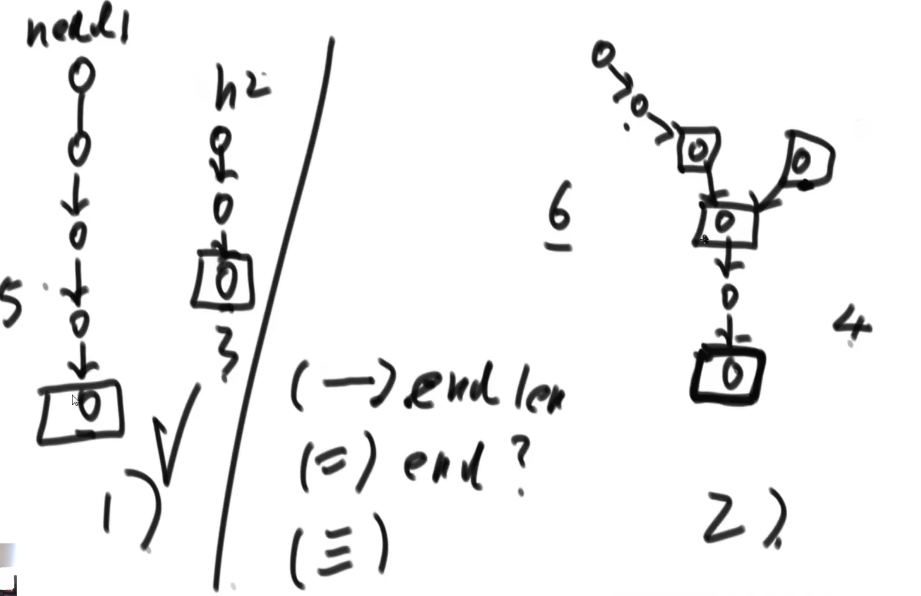 head1
h2
5
3
1)
6
4
(一) end len
(二) end ?
(三)
2)